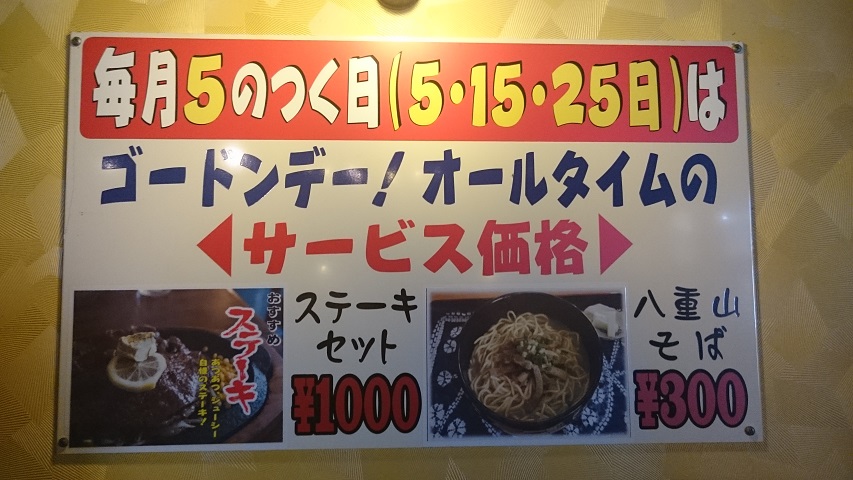 毎月5のつく日(5・15・25日)は
ゴードンデー!オールタイムの
サービス価格
おすすめ
ステーキ
あつあつジューシー
自慢のステーキ!
ステーキ
セット
¥1000
八重山
そば
¥300